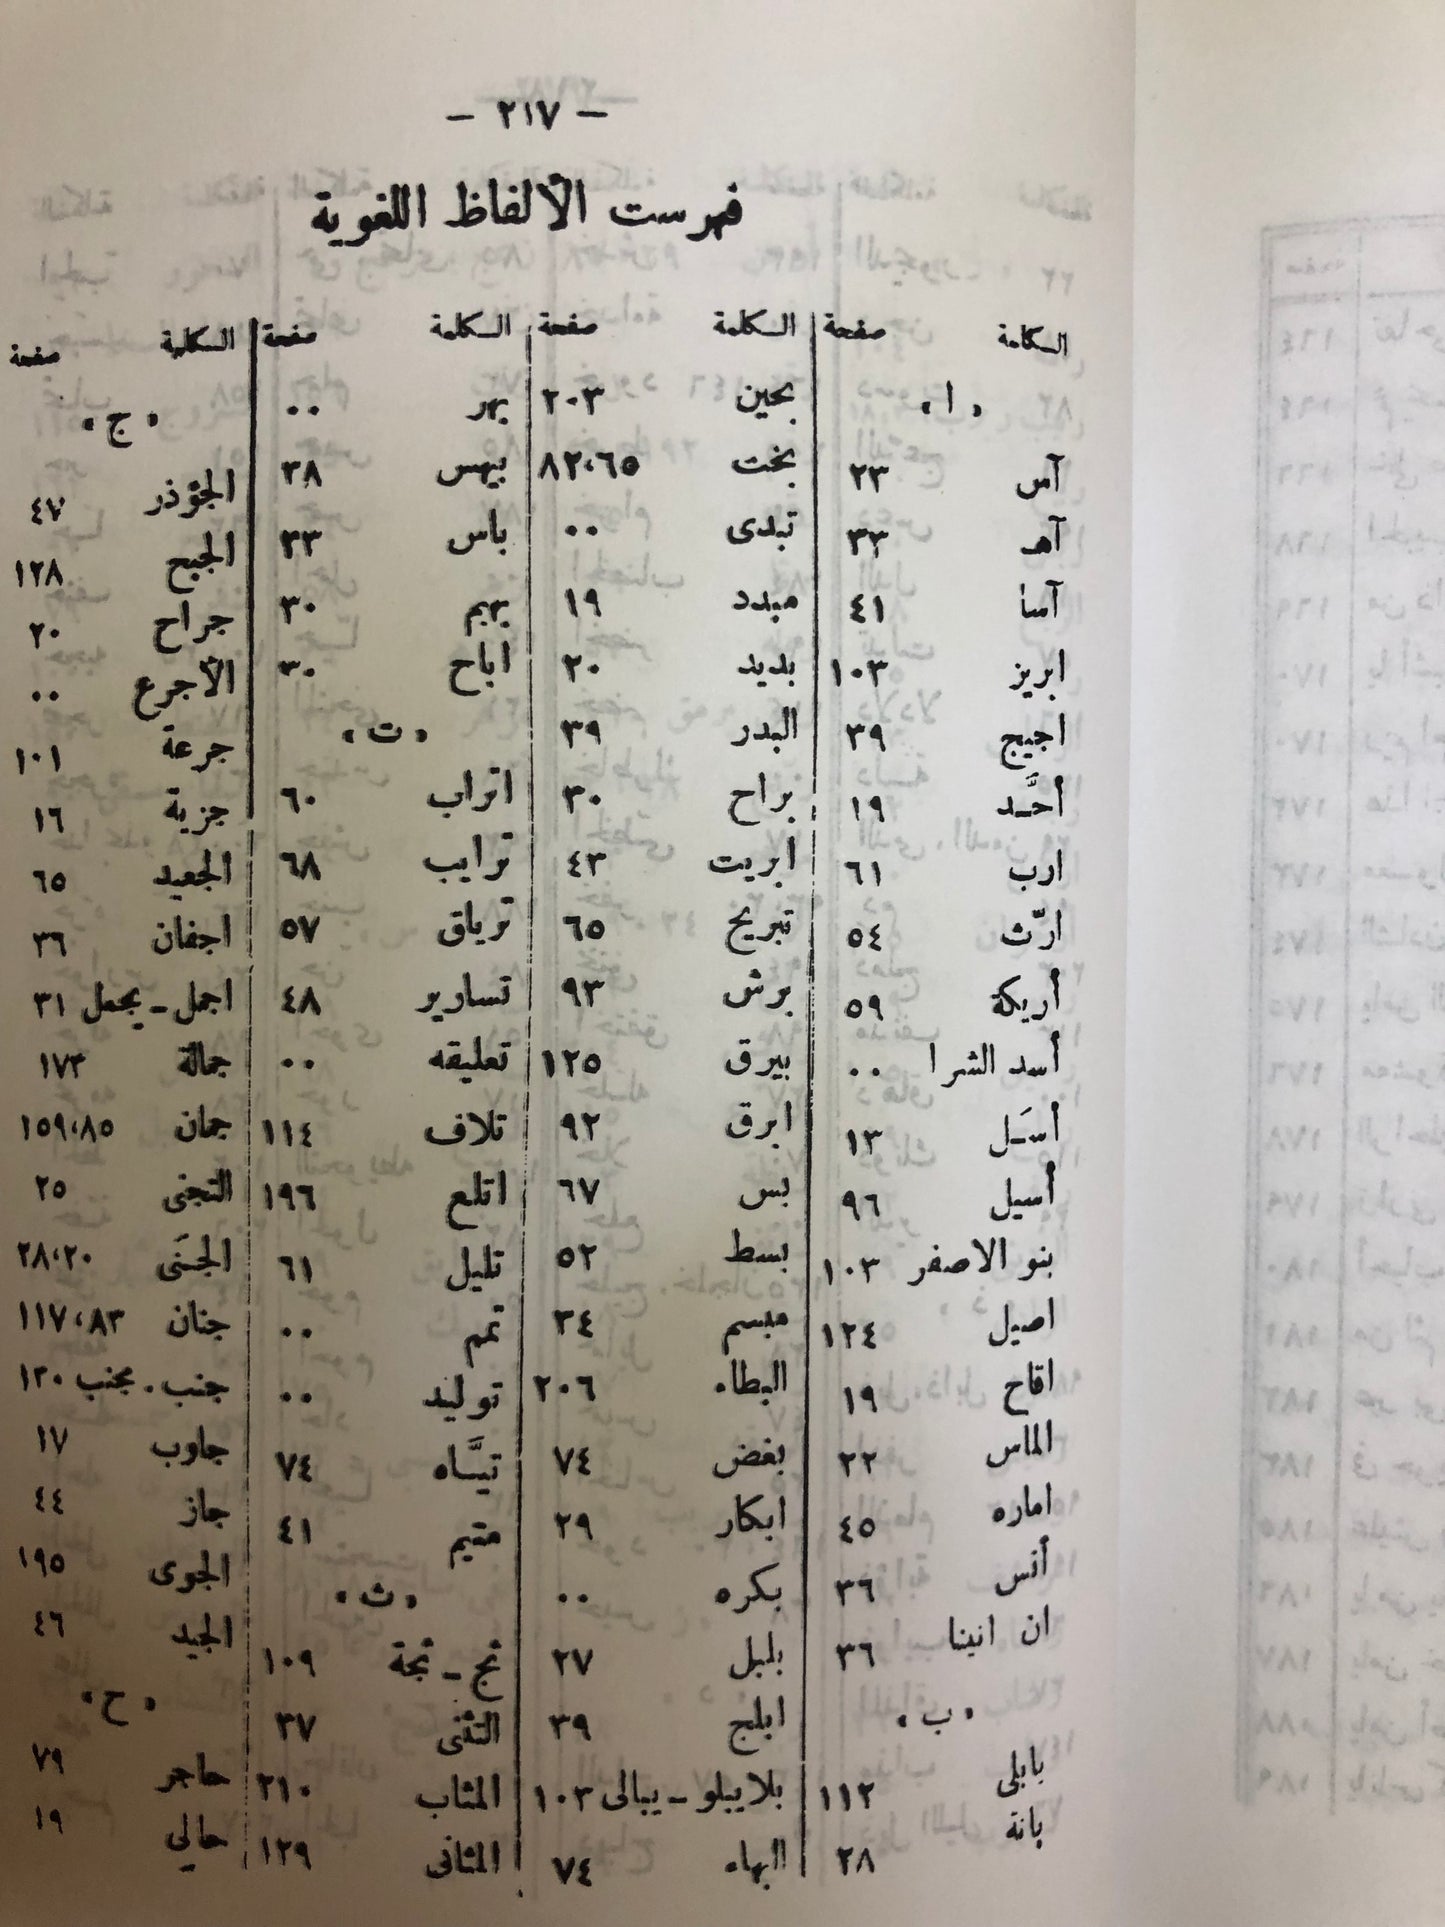 — ٢١٧ —
فهرست الألفاظ اللغوية
الكلمة صفحة
« ا »
آس ٢٣
آهـ ٣٣
آسا ٤١
ابريز ١٠٣
اجيج ٣٩
أحَّـد ١٩
ارب ٦١
ارّث ٥٤
أريكة ٥٩
أسد الشرا ٠٠
أسَـل ١٣
أسيل ٩٦
بنو الاصفر ١٠٣
اصيل ١٢٤
اقاح ١٩
الماس ٢٢
اماره ٤٥
أنس ٣٦
ان انينا ٣٦
« ب »
بابلى ١١٢
بانة ٢٨
الكلمة صفحة
بحين ٢٠٣
بخت ٨٢،٦٥
تبدى ٠٠
مبدد ١٩
بديد ٢٠
البدر ٣٩
براح ٣٠
ابريت ٤٣
تبريح ٦٥
برش ٩٣
بيرق ١٢٥
ابرق ٩٢
بس ٦٧
بسط ٥٢
مبسم ٣٤
البطاء ٢٠٦
بغض ٧٤
ابكار ٢٩
بكره ٠٠
بلبل ٢٧
ابلج ٣٩
بلايبلو - يبالى ١٠٣
البهاء ٧٤
الكلمة صفحة
بهر ٠٠
بيهس ٣٨
باس ٣٣
بهيم ٣٠
اباح ٣٠
« ت »
اتراب ٦٠
ترايب ٦٨
ترياق ٥٧
تسارير ٤٨
تعليقه ٠٠
تلاف ١١٤
اتلع ١٩٦
تليل ٦١
تمم ٠٠
توليد ٠٠
تيـَّاه ٧٤
متيم ٤١
« ث »
ثج - ثجة ١٠٩
التثنى ٣٧
المثاب ٢١٠
المثانى ١٢٩
الكلمة صفحة
« ج »
الجؤذر ٤٧
الجبح ١٢٨
جراح ٢٠
الأجرع ٠٠
جرعة ١٠١
جزية ١٦
الجعيد ٦٥
اجفان ٣٦
اجمل - يجمل ٣١
جمالة ١٧٣
جمان ١٥٩،٨٥
التجنى ٢٥
الجَنى ٢٨،٢٠
جنان ١١٧،٨٣
جنب . بجنب ١٢٠
جاوب ١٧
جاز ٤٤
الجوى ١٩٥
الجيد ٤٦
« ح »
حاجر ٧٩
حالي ١٩